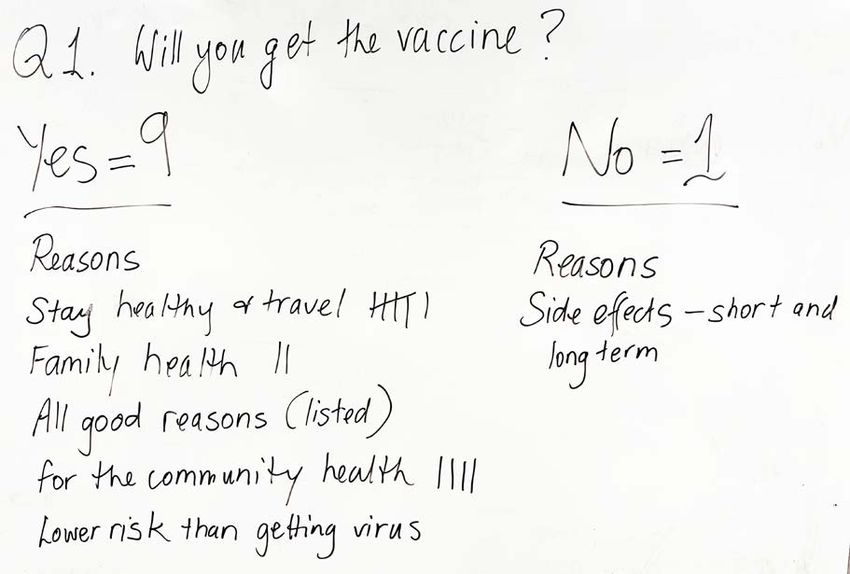 Q1. Will you get the vaccine?
Yes = 9
No = 1
Reasons
Stay healthy & travel 卌 |
Family health ||
All good reasons (listed)
for the community health ||||
Lower risk than getting virus
Reasons
Side effects – short and
long term